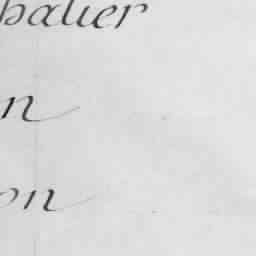 halier
n
on